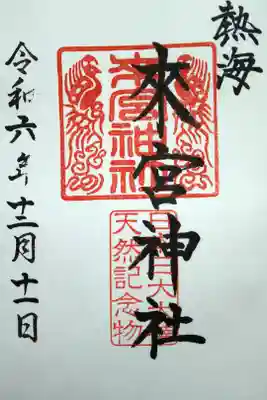 熱海
來宮神社
令和六年十二月十一日
來宮神社
天然記念物